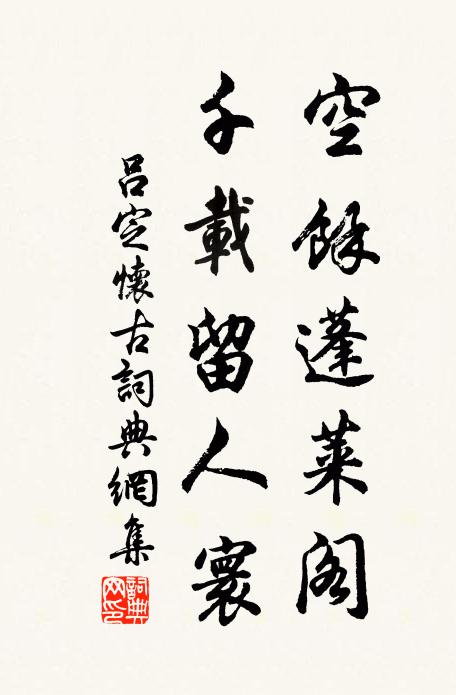 空餘蓬萊閣
千載留人寰
呂定懷古詞典網集
詞典網印